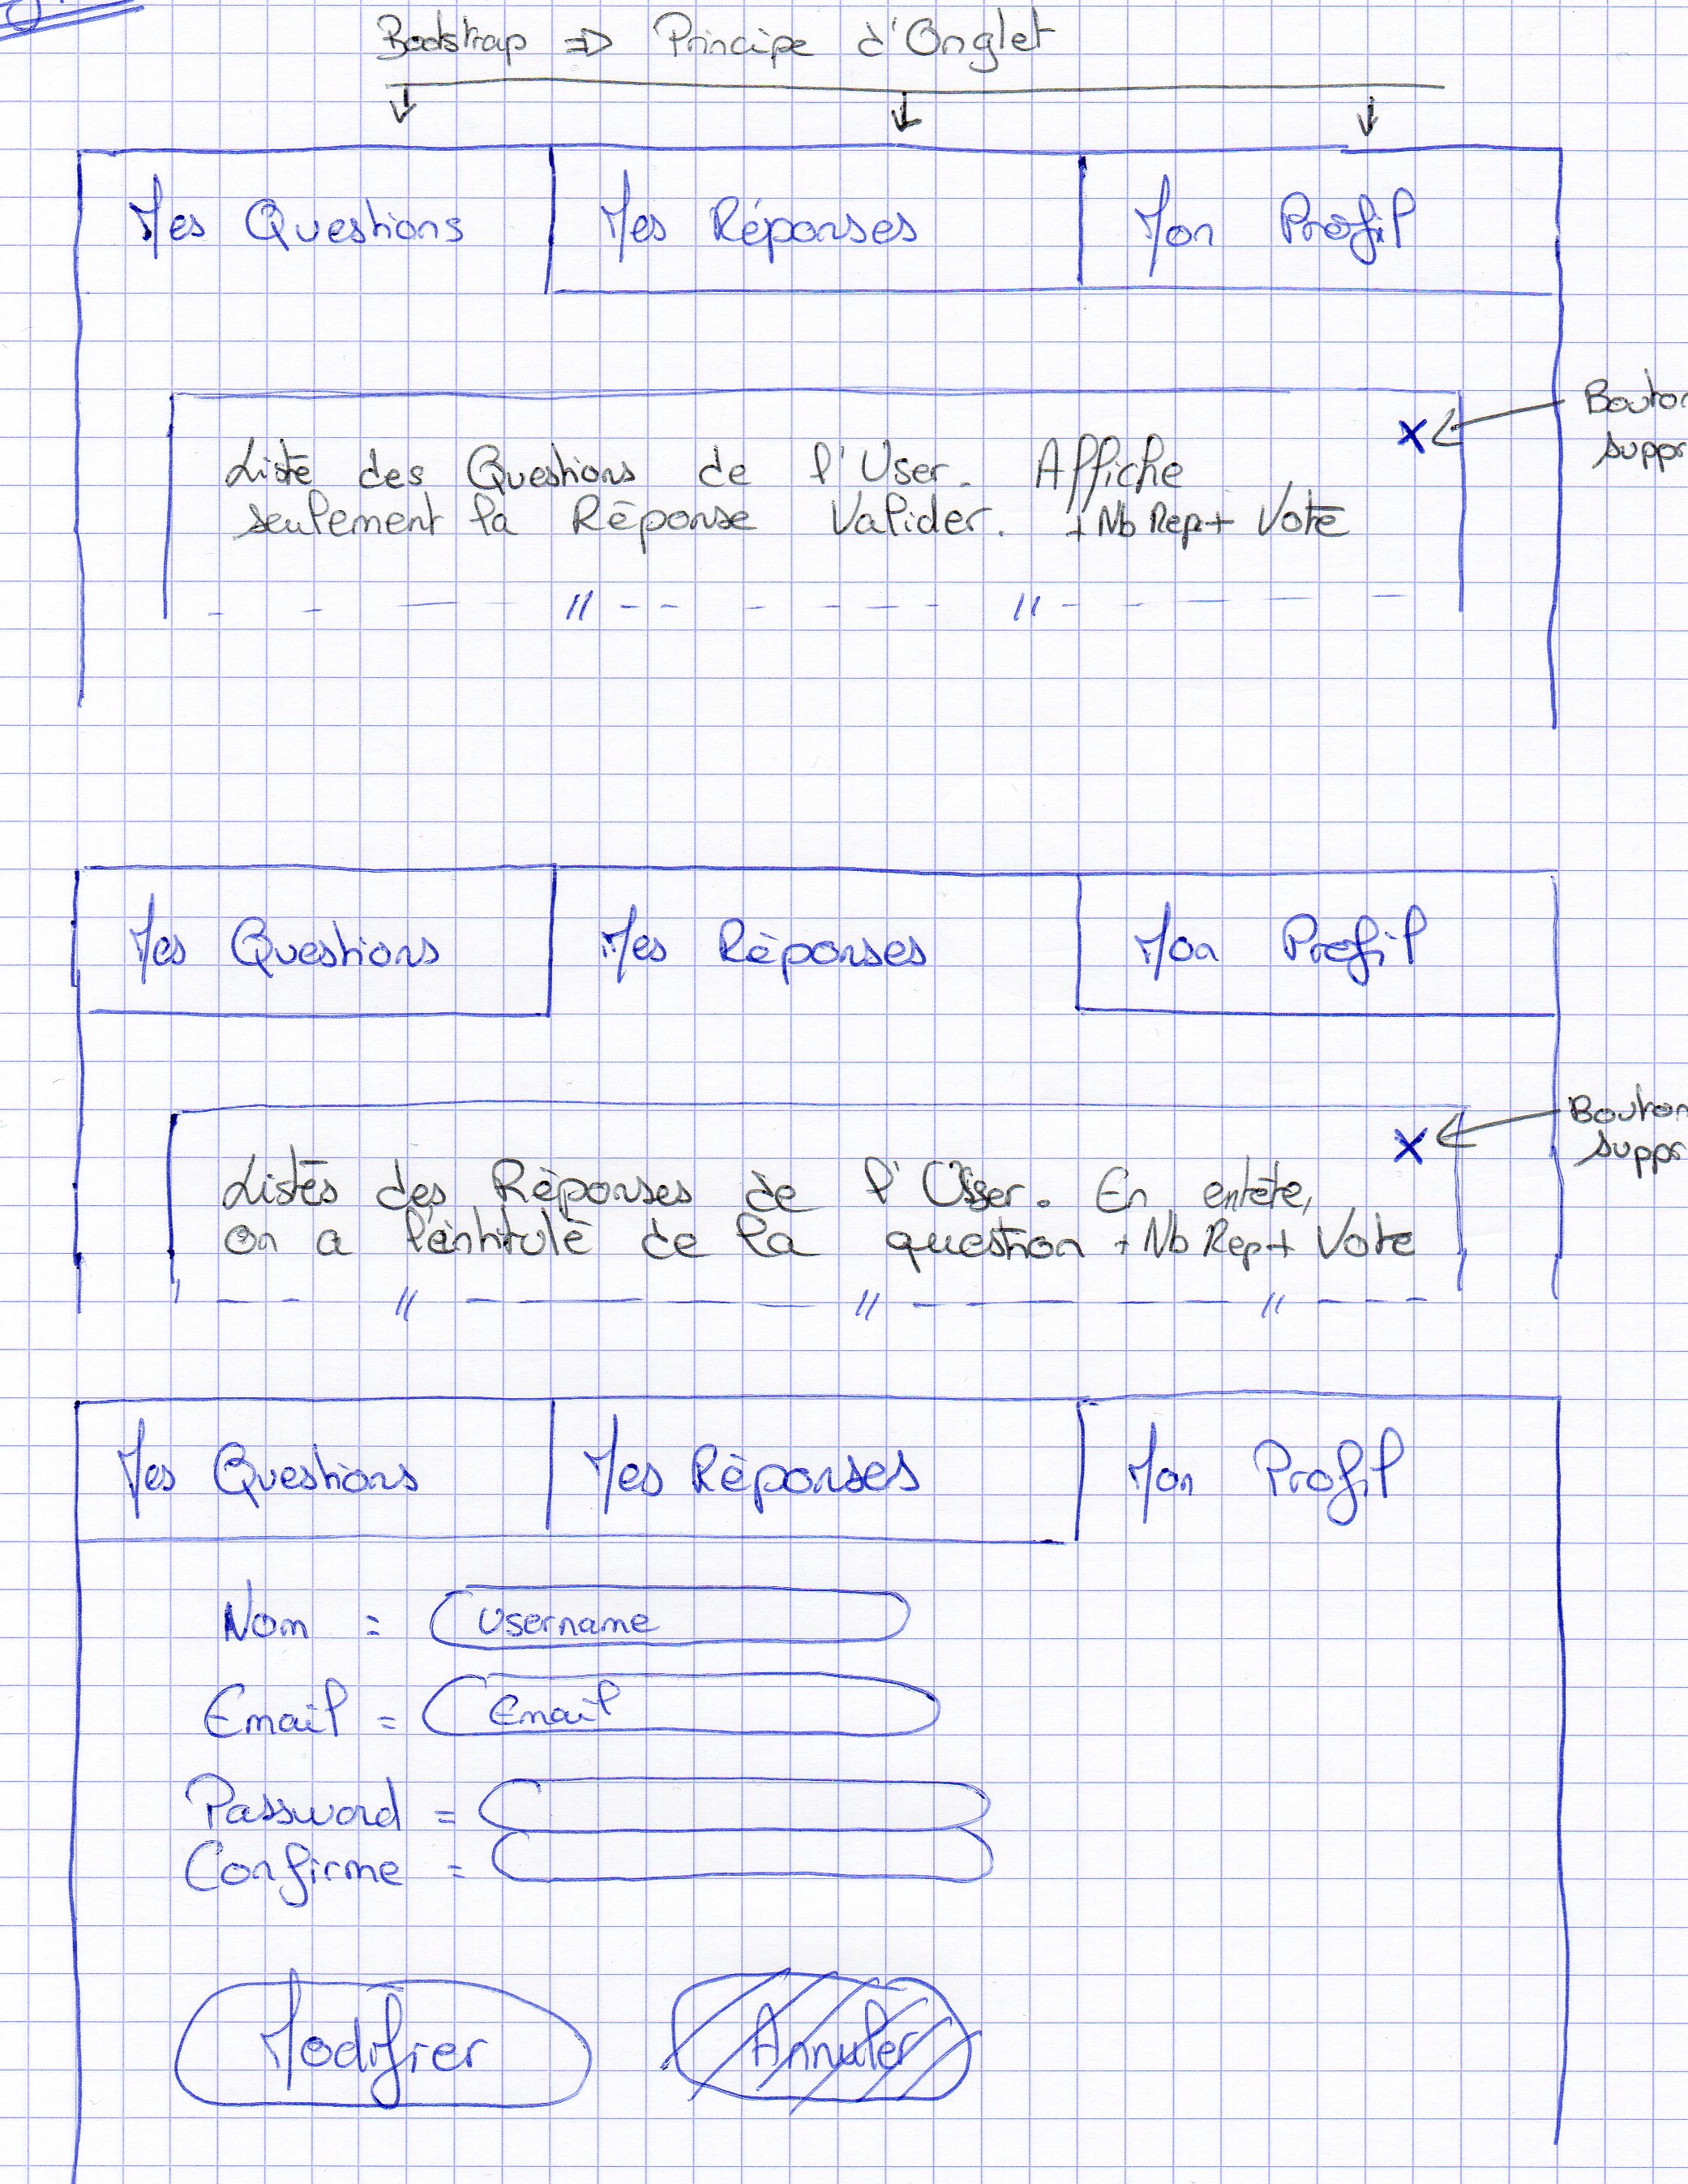 Bootstrap => Principe d'Onglet
Mes Questions Mes Réponses Mon Profil
Bouton
suppr
x
Liste des Questions de l'User. Affiche
seulement la Réponse Valider. + Nb Rep + Vote
Mes Questions Mes Réponses Mon Profil
Bouton
suppr
x
Listes des Réponses de l'User. En entête,
on a l'intitulé de la question + Nb Rep + Vote
Mes Questions Mes Réponses Mon Profil
Nom = username
Email = Email
Password =
Confirme =
Modifier Annuler